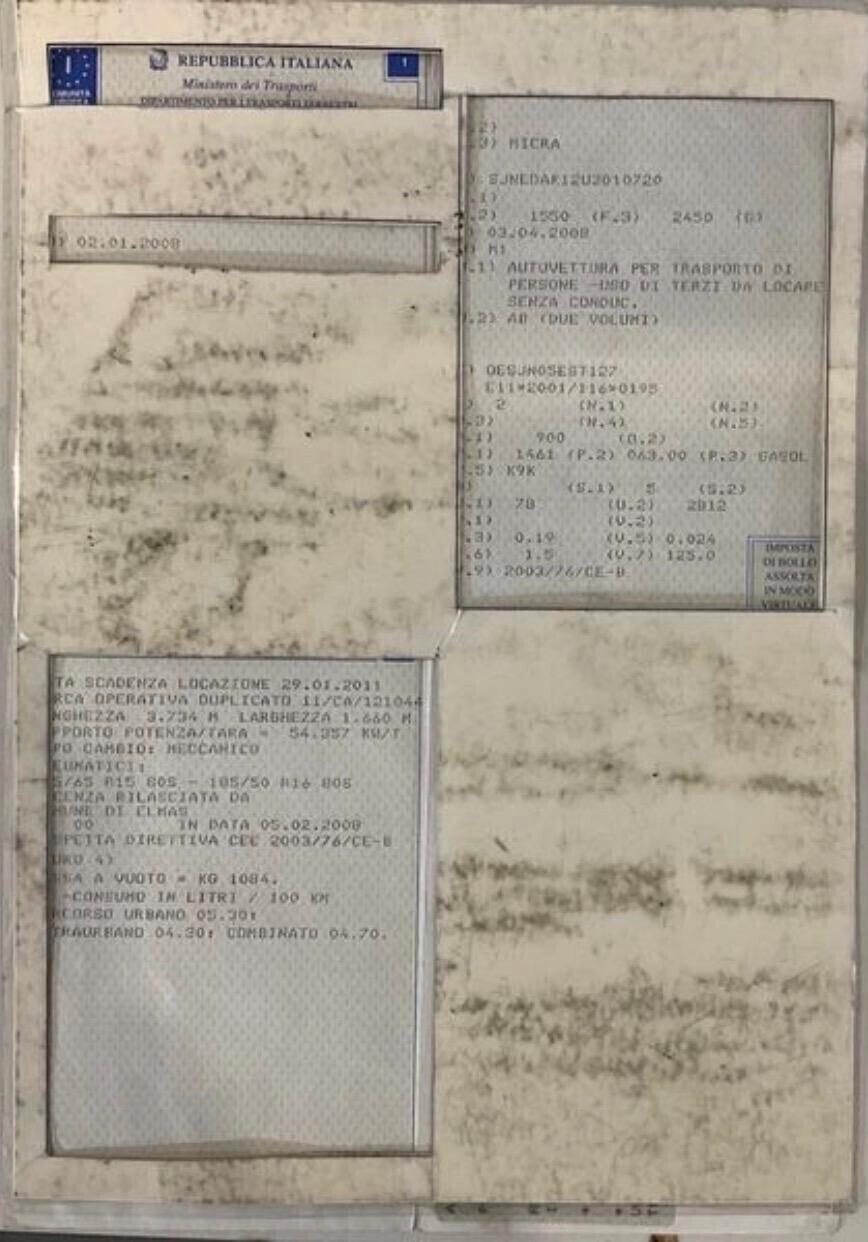 REPUBBLICA ITALIANA
1
I
Ministero dei Trasporti
COMUNITÀ
DIPARTIMENTO PER I TRASPORTI TERRESTRI
) 02.01.2008
.2)
.3) MICRA
) SJNEDAK12U2010720
.1)
.2) 1550 (F.3) 2450 (G)
) 03.04.2008
) M1
.1) AUTOVETTURA PER TRASPORTO DI
PERSONE -USO DI TERZI DA LOCARE
SENZA CONDUC.
.2) AB (DUE VOLUMI)
) OESJN05EST127
E11*2001/116*0195
) 2 (N.1) (N.2)
.3) (N.4) (N.5)
.1) 900 (O.2)
.1) 1461 (P.2) 063.00 (P.3) GASOL
.5) K9K
) (S.1) 5 (S.2)
.1) 78 (U.2) 2812
.1) (V.2)
.3) 0.19 (V.5) 0.024
.6) 1.5 (V.7) 125.0
.9) 2003/76/CE-B
IMPOSTA
DI BOLLO
ASSOLTA
IN MODO
VIRTUALE
TA SCADENZA LOCAZIONE 29.01.2011
RCA OPERATIVA DUPLICATO 11/CA/121044
NGHEZZA 3.734 M LARGHEZZA 1.660 M
PPORTO POTENZA/TARA = 54.357 KW/T
PO CAMBIO: MECCANICO
EUMATICI:
5/65 R15 80S - 185/50 R16 80S
CENZA RILASCIATA DA
MUNE DI ELMAS
00 IN DATA 05.02.2008
SPETTA DIRETTIVA CEE 2003/76/CE-B
URO 4)
SSA A VUOTO = KG 1084.
-CONSUMO IN LITRI / 100 KM
RCORSO URBANO 05.30;
TRAURBANO 04.30; COMBINATO 04.70.